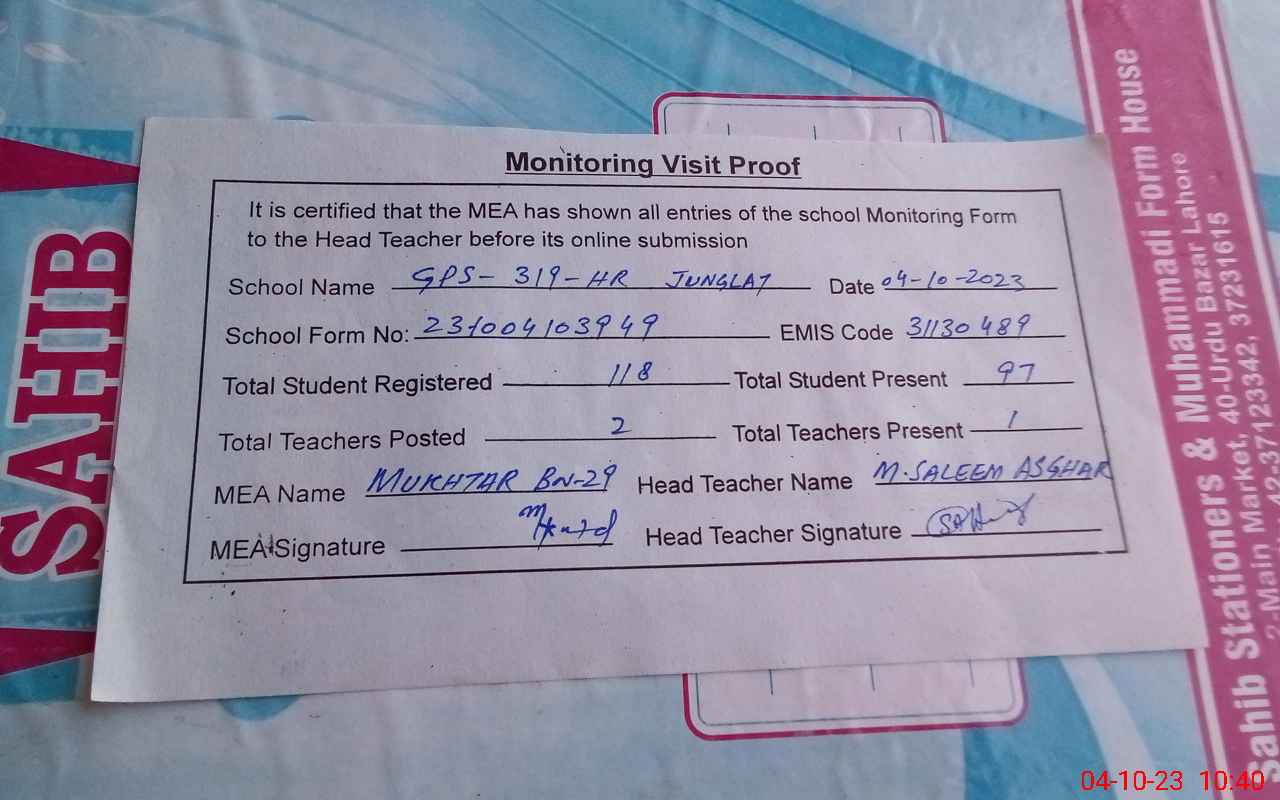 Monitoring Visit Proof
It is certified that the MEA has shown all entries of the school Monitoring Form
to the Head Teacher before its online submission
School Name GPS- 319-HR JUNGLAT Date 04-10-2023
School Form No: 231004103949 EMIS Code 31130489
Total Student Registered 118 Total Student Present 97
Total Teachers Posted 2 Total Teachers Present 1
MEA Name MUKHTAR BN-29 Head Teacher Name M.SALEEM ASGHAR
MEA Signature Head Teacher Signature
SAHIB
Sahib Stationers & Muhammadi Form House
-Main Market, 40-Urdu Bazar Lahore
42-37123342, 37231615
04-10-23 10:40